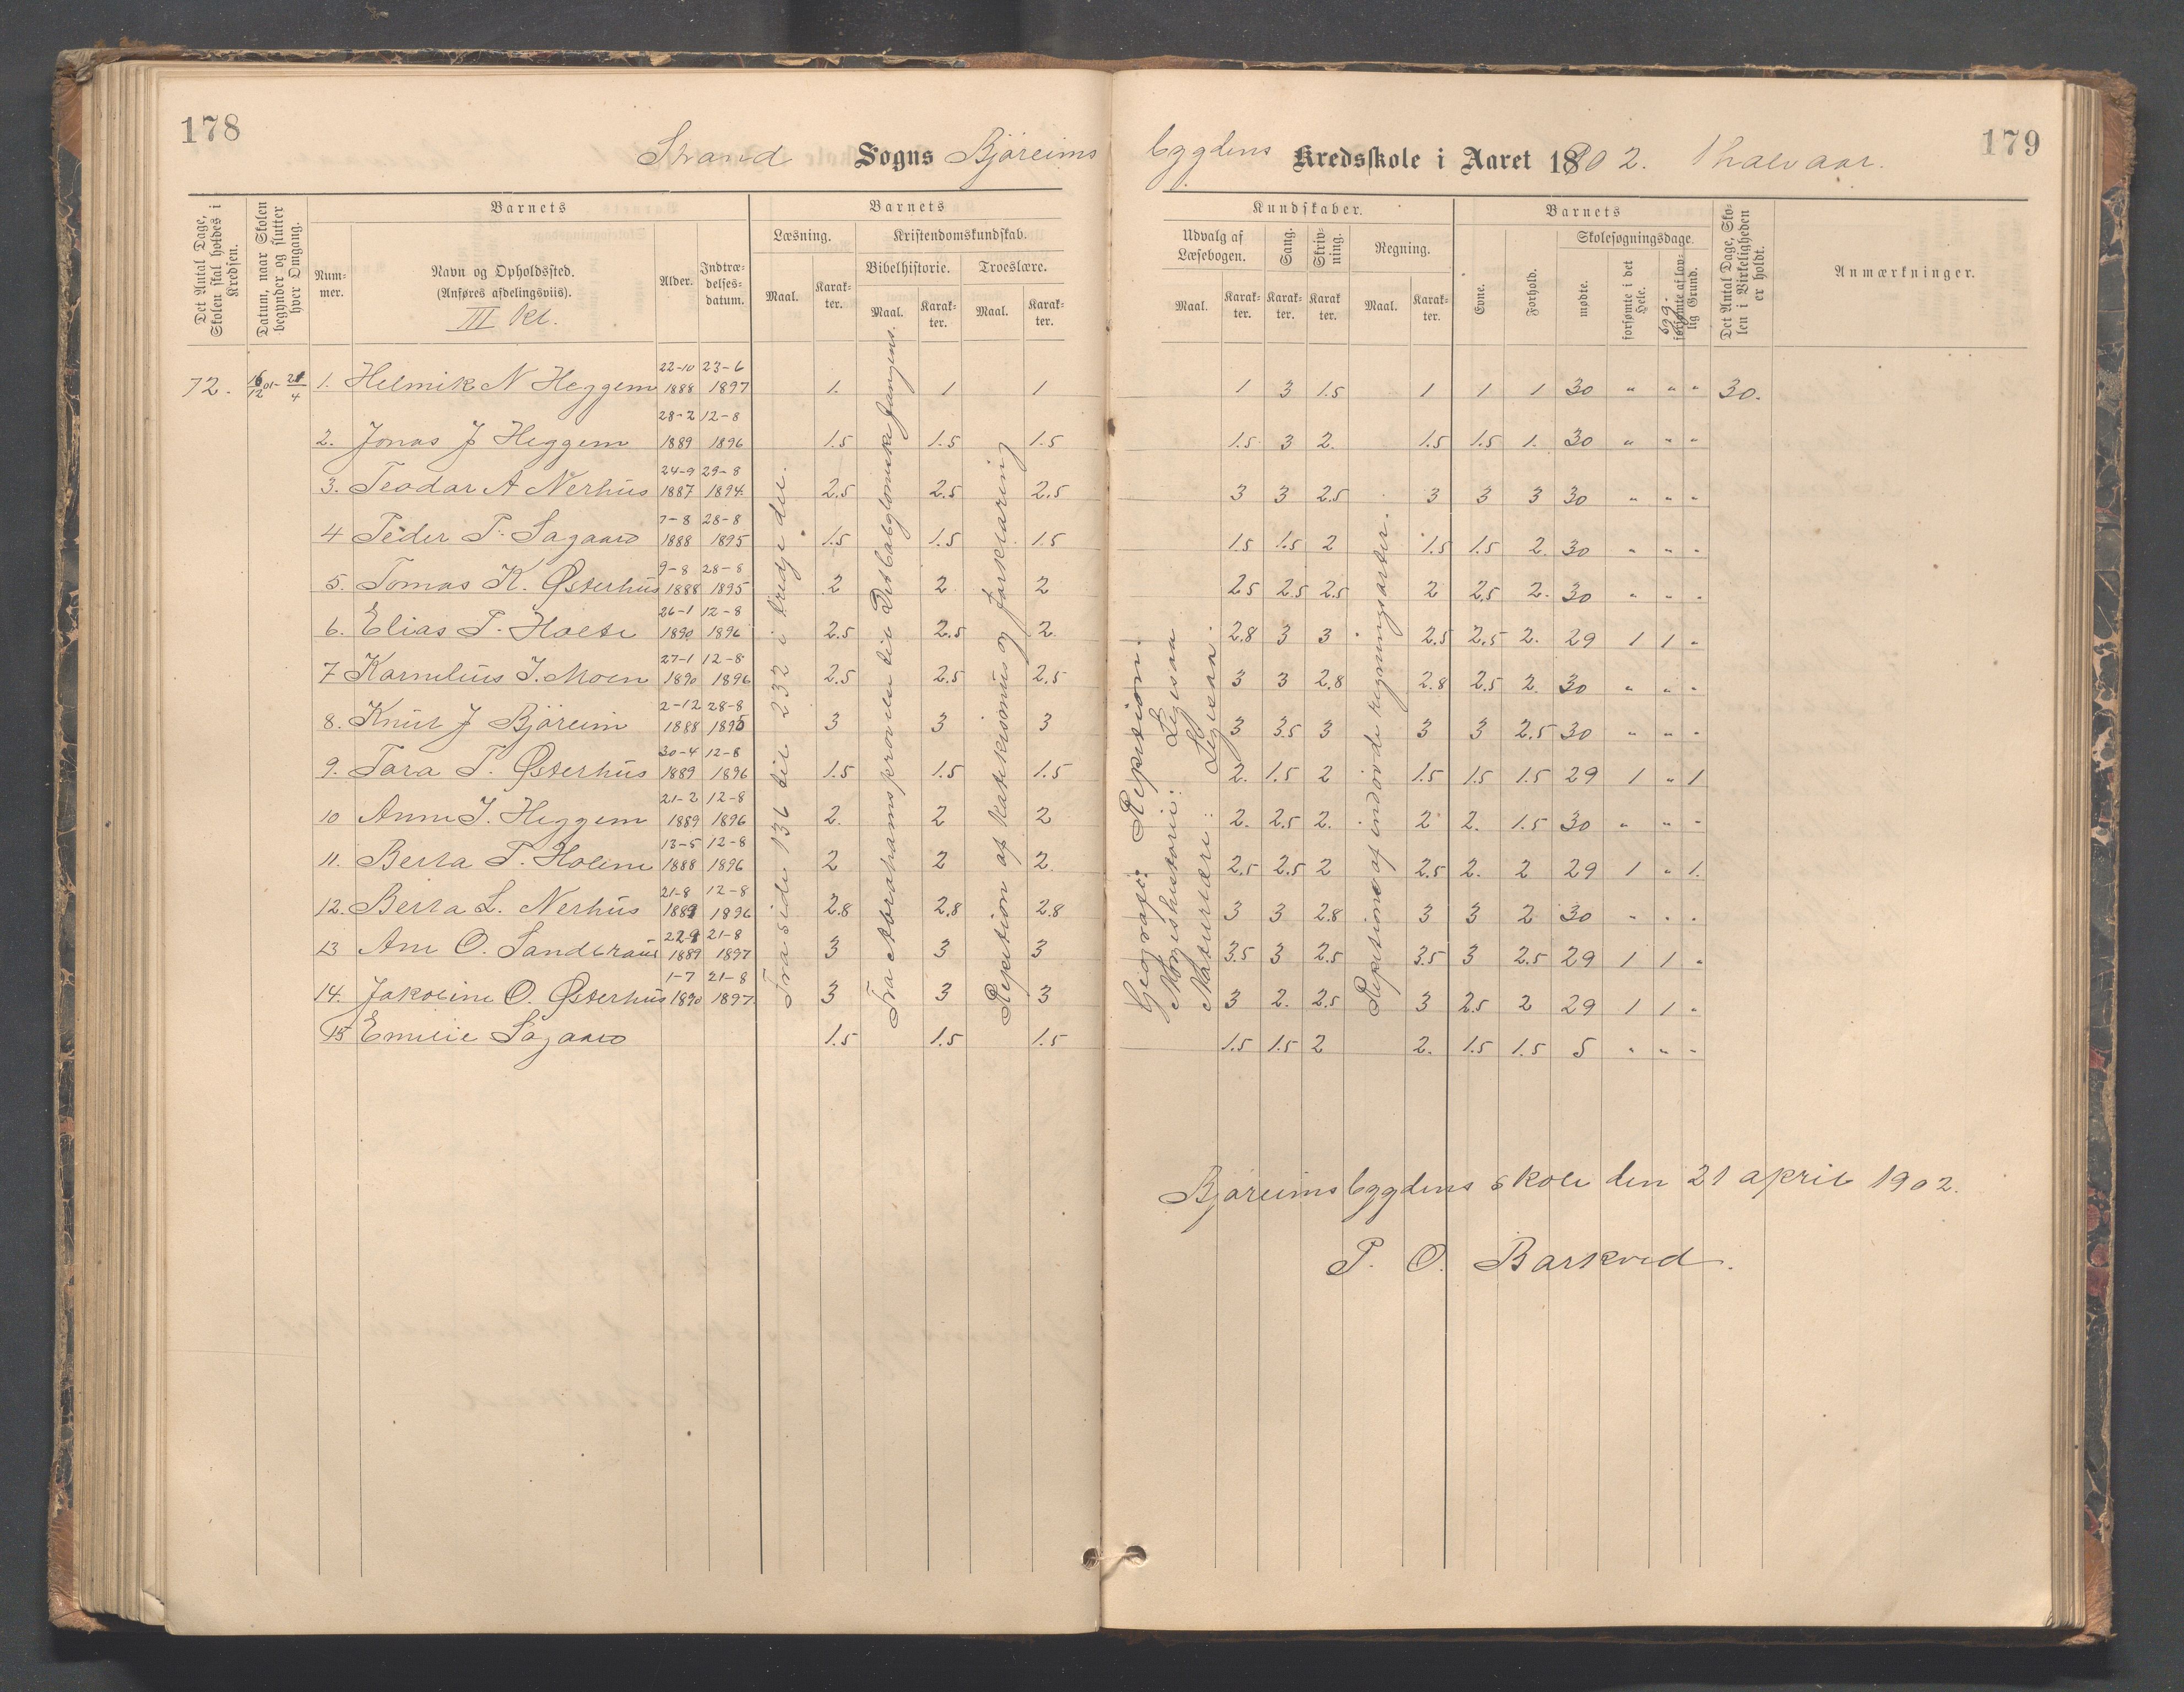 178
Strand Sogns Bjøreims
Det Antal Dage, Skolen skal holdes i Kredsen.
Datum, naar Skolen begynder og slutter hver Omgang.
Barnets
Nummer.
Navn og Opholdssted.
(Anføres afdelingsviis).
III kl.
Alder.
Indtrædelsesdatum.
Barnets
Læsning.
Maal.
Karakter.
Kristendomskundskab.
Bibelhistorie.
Maal.
Karakter.
Troeslære.
Maal.
Karakter.
72. 16/12 01- 21/4 1. Helmik N Heggem 22-10 1888 23-6 1897 1. 1 1
2. Jonas J Heggem 28-2 1889 12-8 1896 1.5 1.5 1.5
3. Teodar A Nerhus 24-9 1887 29-8 1894 2.5 2.5 2.5
4 Peder T. Sagaard 7-8 1888 28-8 1895 1.5 1.5 1.5
5. Tomas K. Østerhus 9-8 1888 28-8 1895 2 2 2
6. Elias T. Holte 26-1 1890 12-8 1896 2.5 2.5 2.
7 Karnelius J. Moen 27-1 1890 12-8 1896 2.5 2.5 2.5
8. Knut J Bjøreim 2-12 1888 28-8 1895 3 3 3
9. Tora T. Østerhus 30-4 1889 12-8 1896 1.5 1.5 1.5
10 Anne J. Heggem 21-2 1889 12-8 1896 2. 2 2
11. Berta T. Holene 13-5 1888 12-8 1896 2 2 2.
12. Berta L. Nerhus 21-8 1889 12-8 1896 2.8 2.8 2.8
13 Ane O. Sandbraut 22-9 1889 21-8 1897 3 3 3
14. Jakobine O. Østerhus 1-7 1890 21-8 1897 3 3 3
15 Emilie Sagaard 1.5 1.5 1.5
Fra side 136 til 232 i tredje del.
Fra Abrahams prøvelse til Det babyloniske fangens.
Repetition af katekismus og forklaring
179
bygdens Kredsskole i Aaret 18902. 1 halvaar.
Kundskaber.
Udvalg af Læsebogen.
Maal.
Karakter.
Sang.
Karakter.
Skrivning.
Karakter.
Regning.
Maal.
Karakter.
Barnets
Evne.
Forhold.
Skolesøgningsdage.
mødte.
forsømte i det Hele.
forsømte af lovlig Grund.
Det Antal Dage, Skolen i Virkeligheden er holdt.
Anmærkninger.
1 3 1.5 1 1 1 30 " " " 30.
1.5 3 2. 1.5 1.5 1. 30 " " "
3 3 2.5 3 3 3 30 " " "
1.5 1.5 2 1.5 1.5 2. 30 " " "
2.5 2.5 2.5 2 2.5 2. 30 " " "
2.8 3 3 2.5 2.5 2. 29 1 1 "
3 3 2.8 2.8 2.5 2. 30 " " "
3 3.5 3 3 3 2.5 30 " " "
2. 1.5 2 1.5 1.5 1.5 29 1 " 1
2. 2.5 2. 2 2. 1.5 30 " " "
2.5 2.5 2 2.5 2. 2 29 1 " 1.
3 3 2.8 3 3 2 30 " " "
3.5 3 2.5 3.5 3 2.5 29 1 1 "
3 2. 2.5 3 2.5 2 29 1 1 "
1.5 1.5 2 2. 1.5 1.5 5 " " "
Geografi: Repetsion.
Norgeshistorie: Ligesaa
Naturlære: Ligesaa.
Repetsion af indøvde regningsarter.
Bjøreimsbygdens skole den 21 april 1902.
P. O. Barkved.